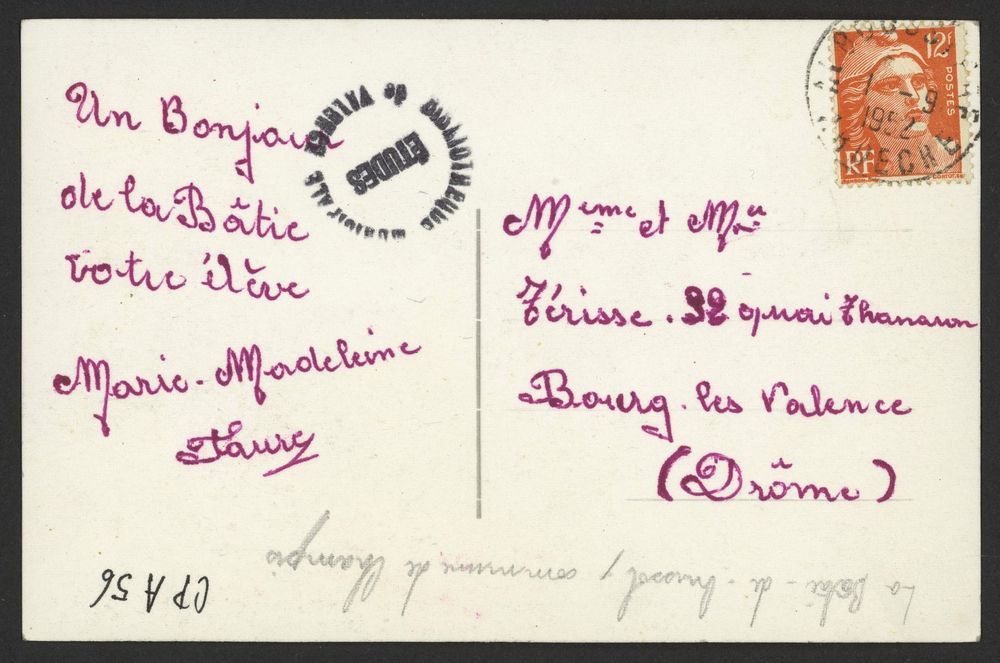 Un Bonjour
de la Bâtie
votre élève
Marie-Madeleine
Faure
BIBLIOTHEQUE MUNICIPALE de VALENCE
ETUDES
12f
POSTES
RF
1-9
1952
Meme et Mr
Térisse. 32 quai Thanaron
Bourg-les Valence
(Drôme)
La Batie-de- commune de Champis
CPA 56